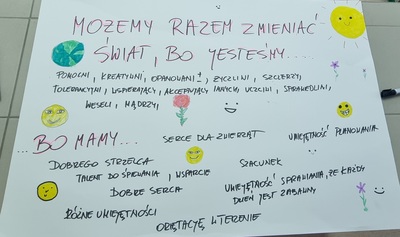 MOŻEMY RAZEM ZMIENIAĆ
ŚWIAT, BO JESTEŚMY.....
POMOCNI, KREATYWNI, OPANOWANI, ŻYCZLIWI, SZCZERZY,
TOLERANCYJNI, WSPIERAJĄCY, AKCEPTUJĄCY INNYCH, UCZCIWI, SPRAWIEDLIWI,
WESELI, MĄDRZY,
...BO MAMY...
SERCE DLA ZWIERZĄT
UMIEJĘTNOŚĆ PLANOWANIA
DOBREGO STRZELCA
SZACUNEK
TALENT DO ŚPIEWANIA, WSPARCIE
DOBRE SERCA
UMIEJĘTNOŚĆ SPRAWIANIA, ŻE KAŻDY
DZIEŃ JEST ZABAWNY
RÓŻNE UMIEJĘTNOŚCI
ORIENTACJĘ W TERENIE